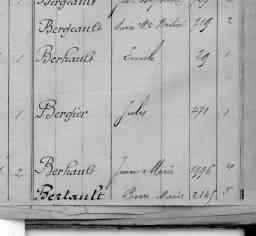 Bergeault 219 2
1 Berhault Emile 29 1
1 Bergier Jules 471 1
2 Berhault Jean Marie 1196 4
Bertault Pierre Marie 2145 5